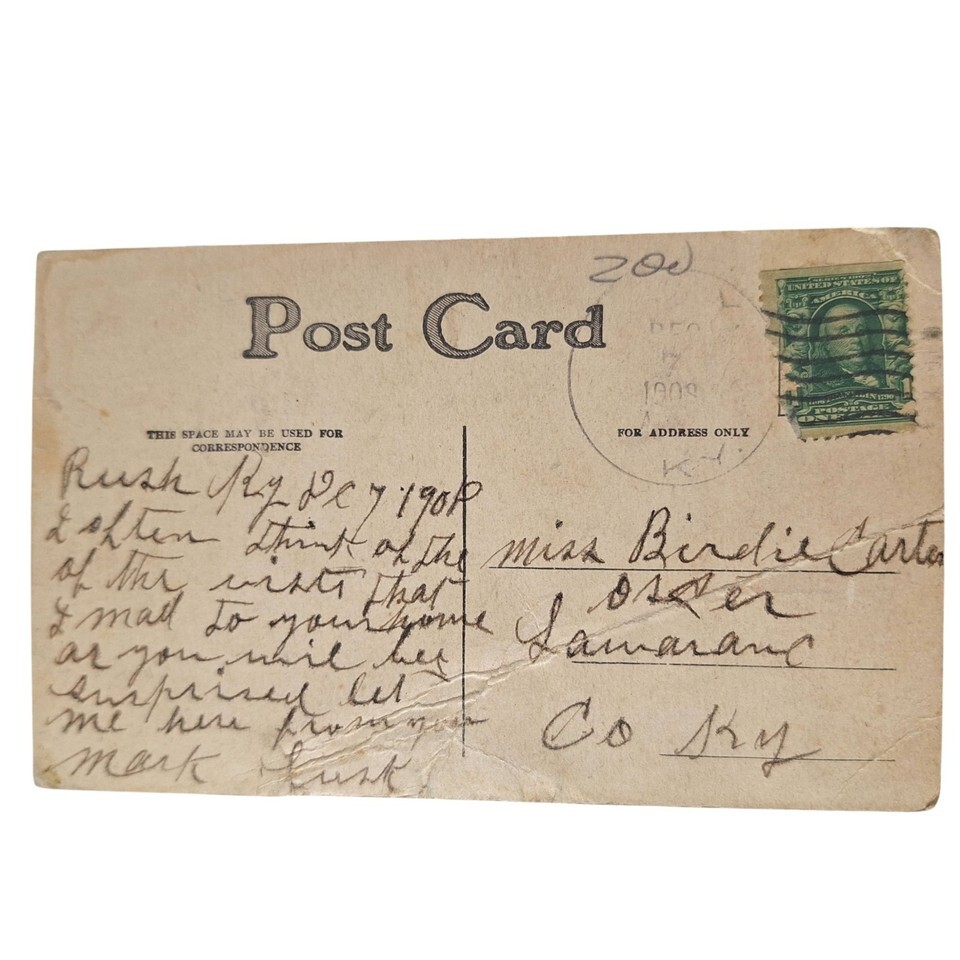 200
Post Card
SERIES 1902
UNITED STATES OF
AMERICA
POSTAGE
ONE
DEC
7
1908
KY.
THIS SPACE MAY BE USED FOR
CORRESPONDENCE
FOR ADDRESS ONLY
Rush Ky DC 7 1908
I often think of the
of the visits that
I mad to your home
as you will bee
surprised let
me here from you
mark Lusk
miss Birdie Carter
Osker
Lawarance
Co Ky